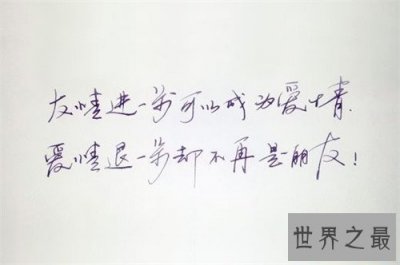 友情进一步可以成为爱情.
爱情退一步却不再是朋友！
世界之最